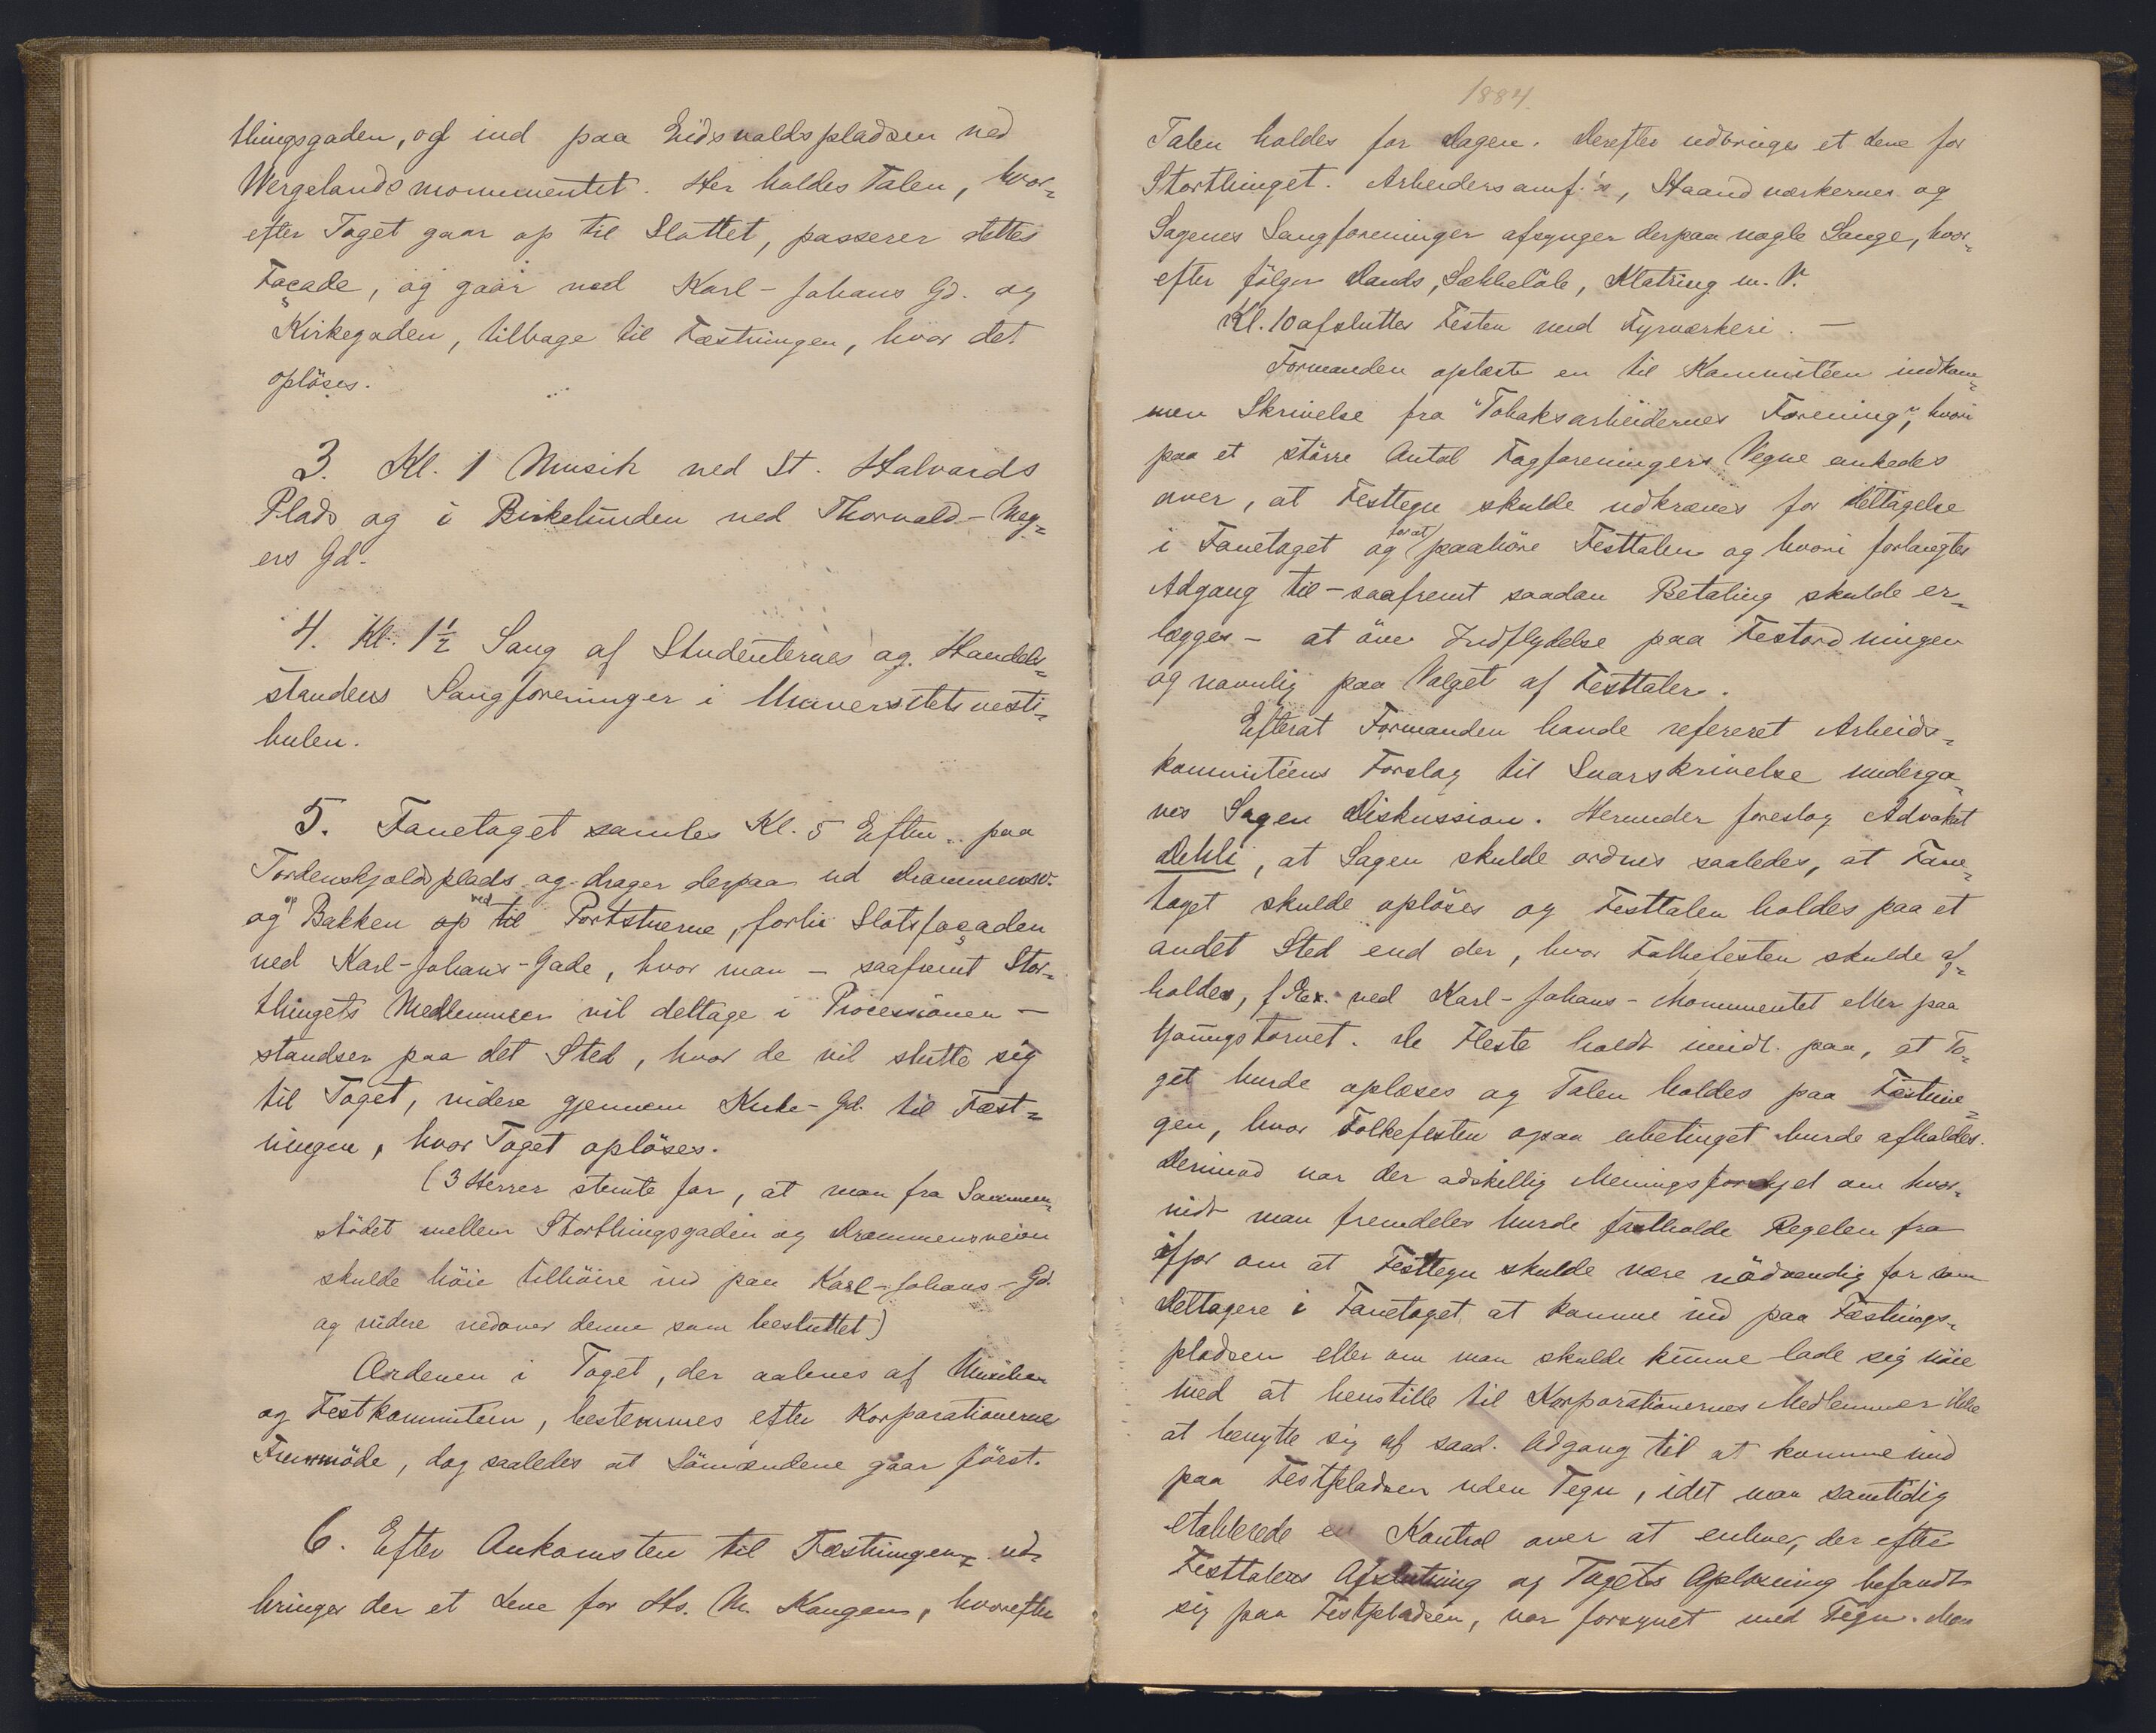 thingsgaden, og ind paa Eidsvoldspladsen ved
Wergelandsmonumentet. Her holdes Talen, hvor-
efter Toget gaar op til Slottet, passerer dettes
Façade, og gaar ned Karl-Johans Gd. og
Kirkegaden, tilbage til Fæstningen, hvor det
opløses.
3. Kl. 1 Musik ved St. Halvards
Plads og i Birkelunden ved Thorvald-Mey-
ers Gd.
4. Kl. 1½ Sang af Studenternes og Handels-
standens Sangforeninger i Universitetsvesti-
bulen.
5. Fanetoget samles Kl. 5 Efterm. paa
Tordenskjolds plads og drager derpaa ud Drammensv.
og op Bakken op ved til Portstuerne, forbi Slotsfaçaden
ned Karl-Johans-Gade, hvor man – saafremt Stor-
thingets Medlemmer vil deltage i Processionen –
standser paa det Sted, hvor de vil slutte sig
til Toget, videre gjennem Kirke-Gd. til Fæst-
ningen, hvor Toget opløses.
(3 Herrer stemte for, at man fra Sammen-
stødet mellem Storthingsgaden og Drammensveien
skulde böie tilhöire ind paa Karl-Johans-Gd.
og videre nedover denne som besluttet)
Ordenen i Toget, der aabnes af Musiken
og Festkommitéen, bestemmes efter Korporationernes
Fremmöde, dog saaledes at Sömændene gaar först.
6. Efter Ankomsten til Fæstningen ud-
bringes der et Leve for Hs. M. Kongen, hvorefter
1884.
Talen holdes for Dagen. Derefter udbringes et Leve for
Storthinget. Arbeidersamf.'s, Haandværkernes og
Sagenes Sangforeninger afsynger derpaa nogle Sange, hvor-
efter følger Dands, Sækkeløb, Klatring m. V.
Kl. 10 afsluttes Festen med Fyrværkeri. –
Formanden oplæste en til Kommitéen indkom-
men Skrivelse fra "Tobaksarbeidernes Forening", hvori
paa et större Antal Fagforeningers Vegne ankedes
over, at Festtegn skulde udkræves for Deltagelse
i Fanetoget og for at paahöre Festtalen og hvori forlangtes
Adgang til – saafremt saadan Betaling skulde er-
lægges – at öve Indflydelse paa Festordningen
og navnlig paa Valget af Festtaler.
Efterat Formanden havde refereret Arbeids-
kommitéens Forslag til Svarskrivelse underga-
ves Sagen Diskussion. Herunder foreslog Advokat
Dehli, at Sagen skulde ordnes saaledes, at Fane-
toget skulde opløses og Festtalen holdes paa et
andet Sted end der, hvor Folkefesten skulde af-
holdes, f. Ex. ved Karl-Johans-Monumentet eller paa
Youngstorvet. De Fleste holdt imidl. paa, at To-
get burde opløses og Talen holdes paa Fæstnin-
gen, hvor Folkefesten ogsaa ubetinget burde afholdes.
Derimod var der adskillig Meningsforskjel om hvor-
vidt man fremdeles burde fastholde Regelen fra
ifjor om at Festtegn skulde være nödvendig for som
Deltagere i Fanetoget at komme ind paa Fæstnings-
pladsen eller om man skulde kunne lade sig nöie
med at henstille til Korporationernes Medlemmer ikke
at benytte sig af saad. Adgang til at komme ind
paa Festpladsen uden Tegn, idet man samtidig
etablerede en Kontrol over at enhver, der efter
Festtalens Afslutning og Togets Opløsning befandt
sig paa Festpladsen, var forsynet med Tegn. Man